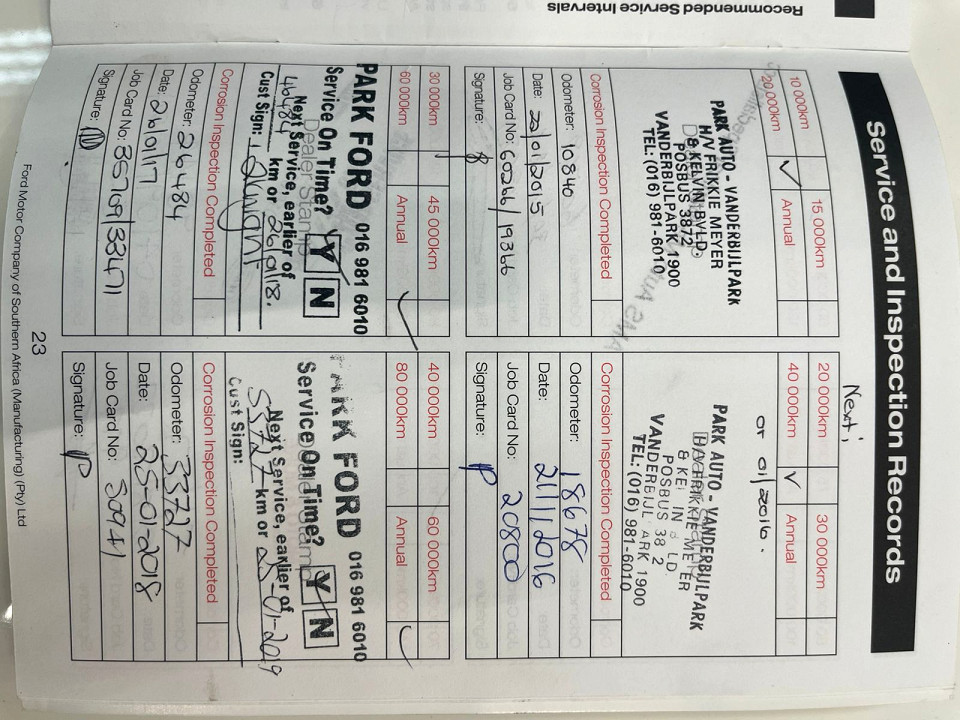 Recommended Service Intervals
Service and Inspection Records
10 000km
15 000km
20 000km
✓
Annual
PARK AUTO - VANDERBIJLPARK
H/V FRIKKIE MEYER
& KELVIN BVLD
POSBUS 3872
VANDERBIJLPARK 1900
TEL: (016) 981-6010
Corrosion Inspection Completed
Odometer: 10840
Date: 20/01/2015
Job Card No: 60266/19366
Signature:
Next:
20 000km
30 000km
40 000km
✓
Annual
or 01/2016.
PARK AUTO - VANDERBIJLPARK
H/V FRIKKIE MEYER
POSBUS 38 2
VANDERBIJL ARK 1900
TEL: (016) 981-6010
Corrosion Inspection Completed
Odometer: 18678
Date: 21/1/2016
Job Card No: 20800
Signature:
30 000km
45 000km
60 000km
Annual
✓
PARK FORD 016 981 6010
Service On Time? Y N
Dealer Stamp
Next Service, earlier of
46484 km or 260118.
Cust Sign:
Corrosion Inspection Completed
Odometer: 26484
Date: 26/01/17
Job Card No: 35709/33471
Signature:
40 000km
60 000km
80 000km
Annual
✓
PARK FORD 016 981 6010
Service On Time? Y N
Next Service, earlier of
53727 km or 25-01-2019
Cust Sign:
Corrosion Inspection Completed
Odometer: 33727
Date: 25-01-2018
Job Card No: 50941
Signature:
23
Ford Motor Company of Southern Africa (Manufacturing) (Pty) Ltd